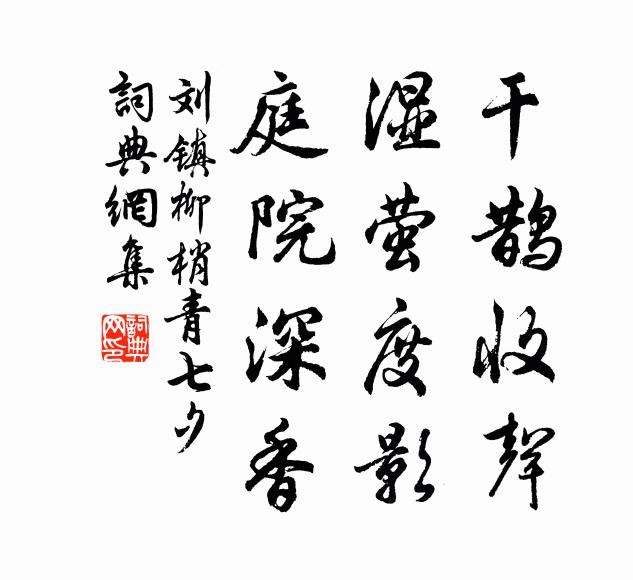 干鹊收声
湿萤度影
庭院深香
刘镇柳梢青七夕
詞典網集
詞典网印